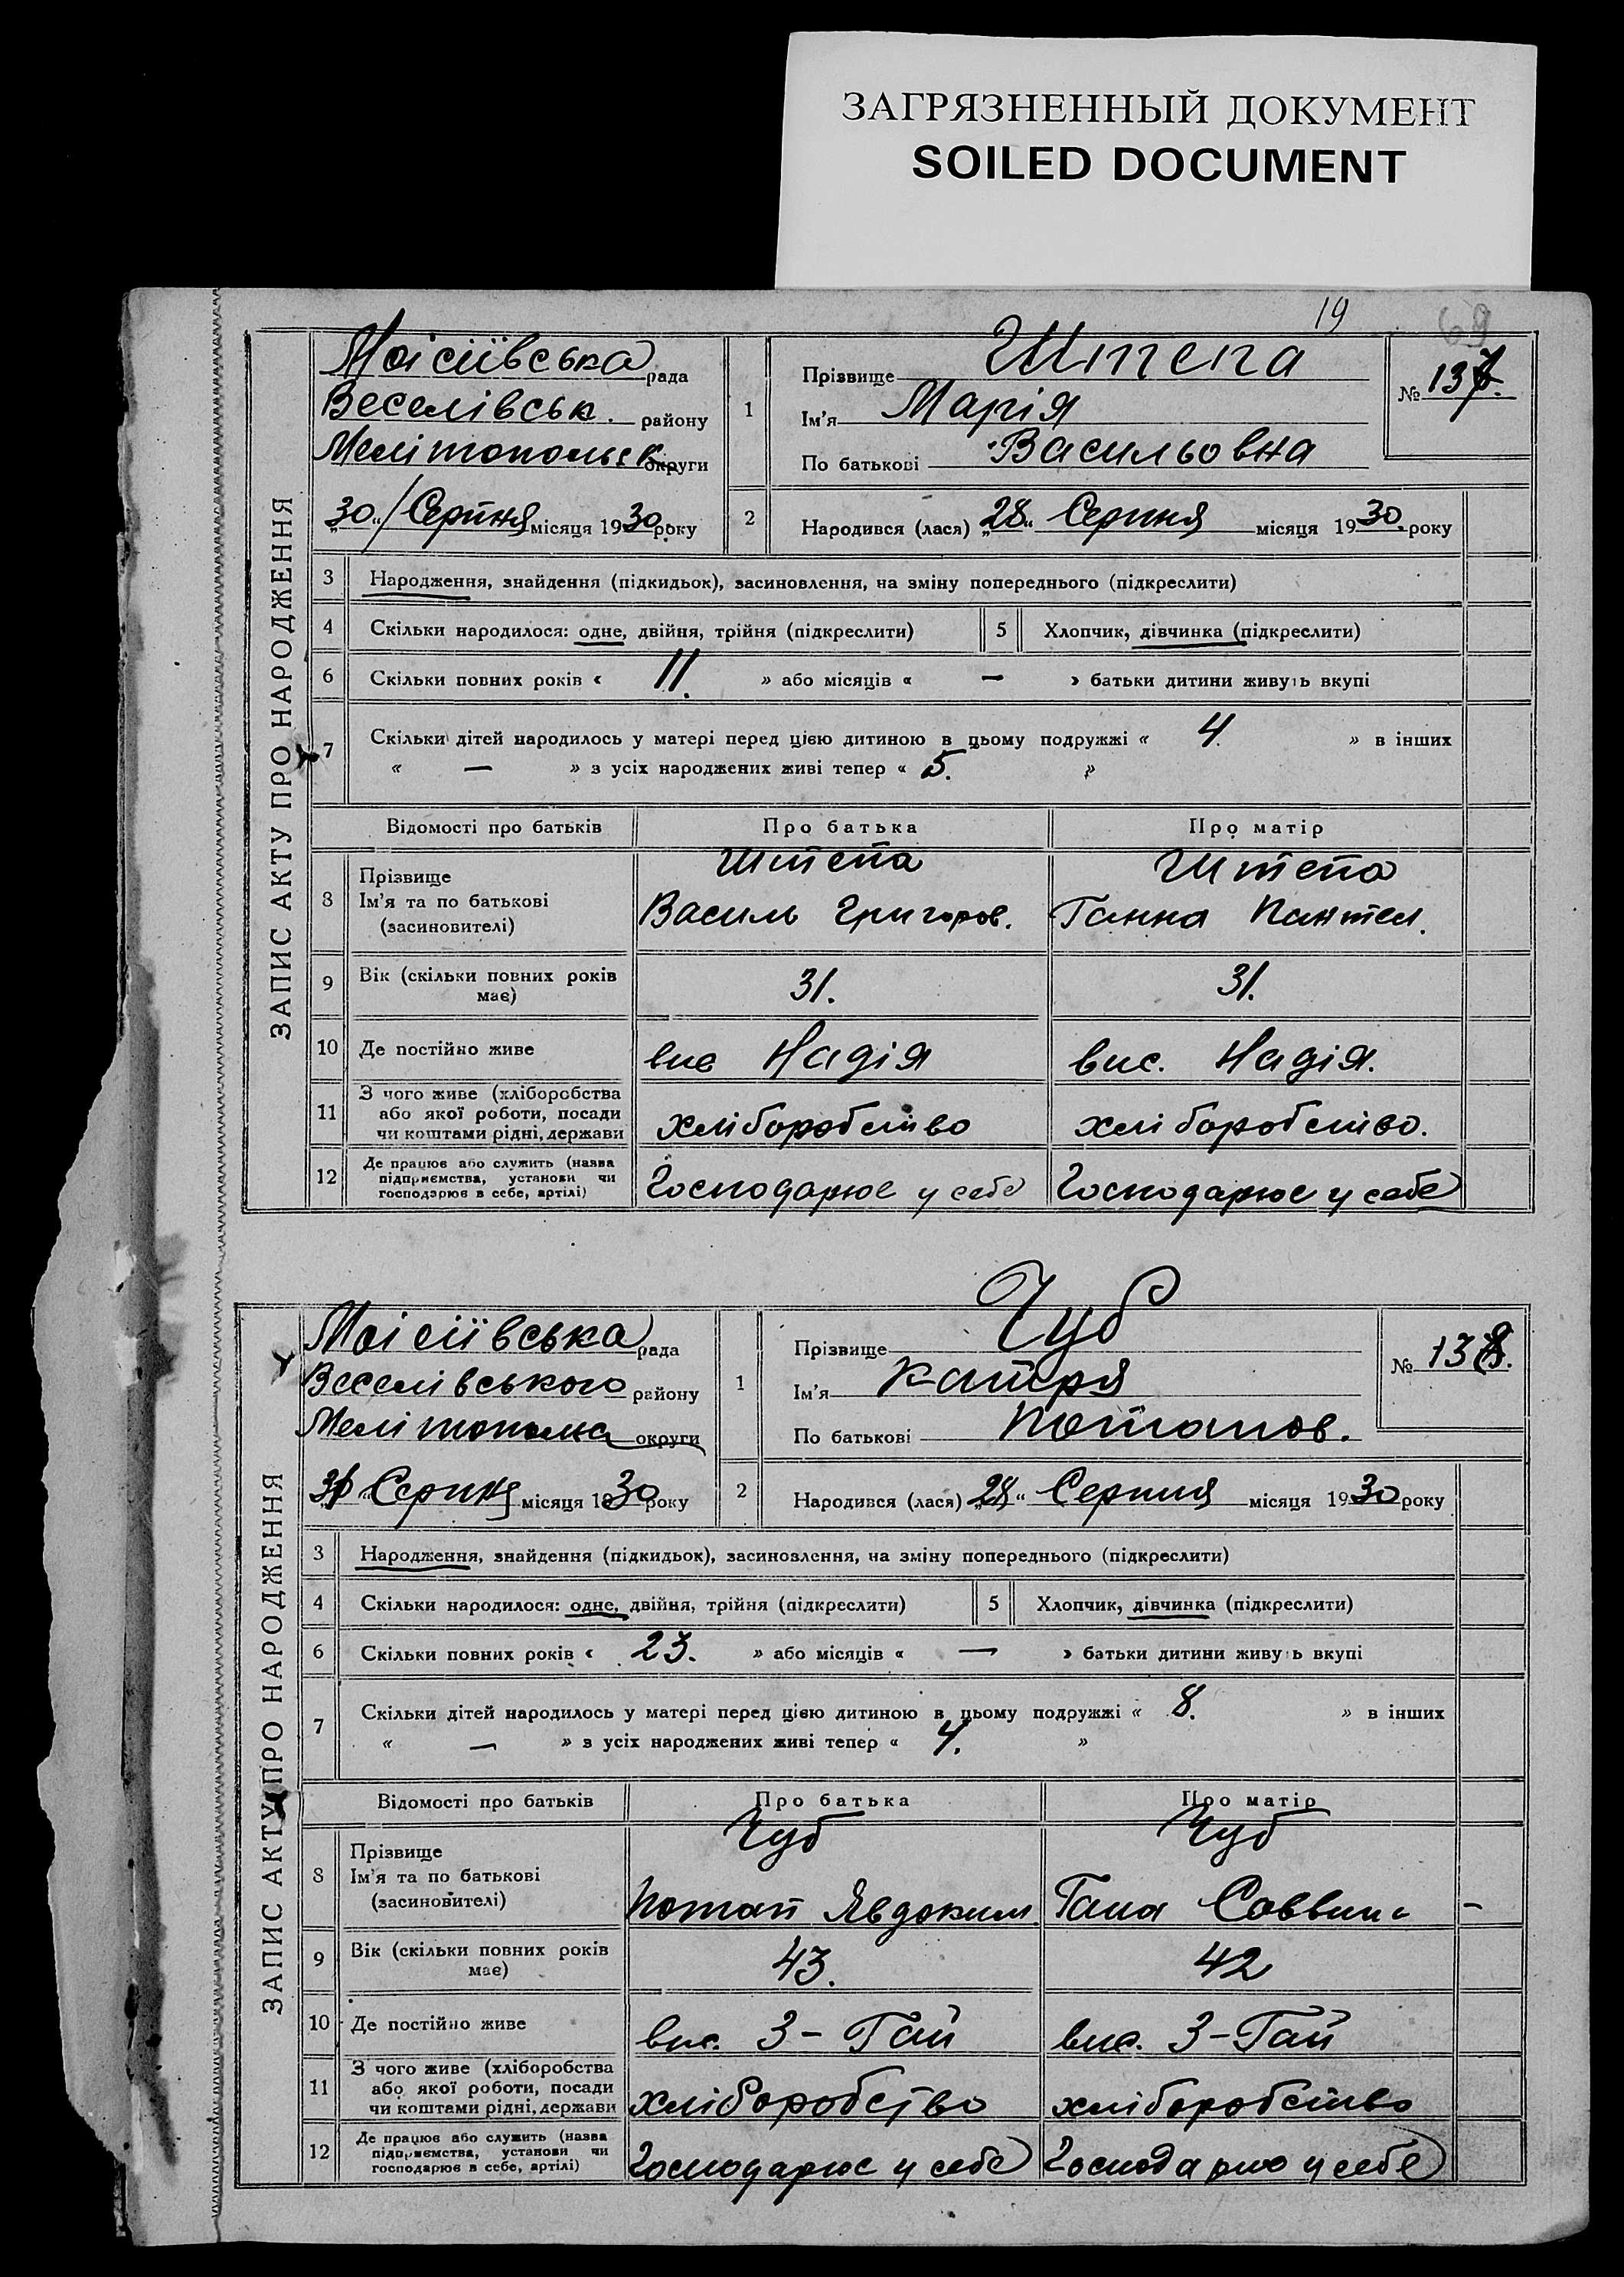 ЗАГРЯЗНЕННЫЙ ДОКУМЕНТ
SOILED DOCUMENT
19
69
ЗАПИС АКТУ ПРО НАРОДЖЕННЯ
Моісіївська рада
Веселівськ. району
Мелітопольськ округи
„30“ Серпня місяця 1930 року
1
Прізвище Штепа
Ім'я Марія
По батькові Васильовна
№ 137.
2
Народився (лася) „28“ Серпня місяця 1930 року
3 Народження, знайдення (підкидьок), засиновлення, на зміну попереднього (підкреслити)
4 Скільки народилося: одне, двійня, трійня (підкреслити) 5 Хлопчик, дівчинка (підкреслити)
6 Скільки повних років « 11. » або місяців « — » батьки дитини живуть вкупі
7 Скільки дітей народилось у матері перед цією дитиною в цьому подружжі « 4. » в інших
« — » з усіх народжених живі тепер « 5. »
Відомості про батьків Про батька Про матір
8 Прізвище Штепа Штепа
Ім'я та по батькові Василь Григоров. Ганна Пантел.
(засиновителі)
9 Вік (скільки повних років має) 31. 31.
10 Де постійно живе вис Надія вис. Надія.
11 З чого живе (хліборобства
або якої роботи, посади
чи коштами рідні, держави хліборобство хліборобство.
12 Де працює або служить (назва
підприємства, установи чи
господарює в себе, артілі) Господарює у себе Господарює у себе
ЗАПИС АКТУ ПРО НАРОДЖЕННЯ
Моісіївська рада
Веселівського району
округи
Серпня місяця 1930 року
1
Прізвище Чуб
Ім'я Катря
По батькові Потапов.
№ 138.
2
Народився (лася) „28“ Серпня місяця 1930 року
3 Народження, знайдення (підкидьок), засиновлення, на зміну попереднього (підкреслити)
4 Скільки народилося: одне, двійня, трійня (підкреслити) 5 Хлопчик, дівчинка (підкреслити)
6 Скільки повних років « 23. » або місяців « — » батьки дитини живуть вкупі
7 Скільки дітей народилось у матері перед цією дитиною в цьому подружжі « 8. » в інших
« — » з усіх народжених живі тепер « 4. »
Відомості про батьків Про батька Про матір
8 Прізвище Чуб Чуб
Ім'я та по батькові Потап Явдоким. Гана Саввин
(засиновителі)
9 Вік (скільки повних років має) 43. 42
10 Де постійно живе вис. 3-Гай вис. 3-Гай
11 З чого живе (хліборобства
або якої роботи, посади
чи коштами рідні, держави хліборобство хліборобство
12 Де працює або служить (назва
підприємства, установи чи
господарює в себе, артілі) Господарює у себе Господарює у себе